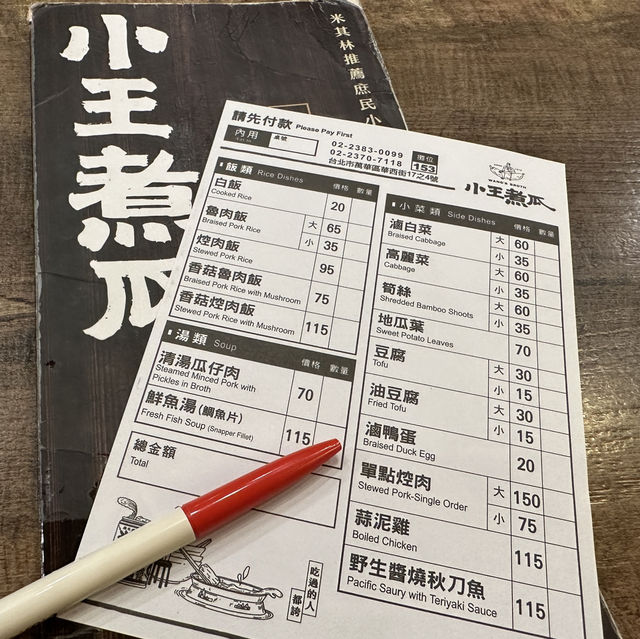 小王煮瓜
米其林推薦庶民小
請先付款 Please Pay First
內用 桌號
02-2383-0099
02-2370-7118
攤位 153
台北市萬華區華西街17之4號
小王煮瓜
飯類 Rice Dishes 價格 數量
白飯 20
Cooked Rice
魯肉飯 大 65
Braised Pork Rice 小 35
焢肉飯 95
Stewed Pork Rice
香菇魯肉飯 75
Braised Pork Rice with Mushroom
香菇焢肉飯 115
Stewed Pork Rice with Mushroom
湯類 Soup 價格 數量
清湯瓜仔肉 70
Steamed Minced Pork with
Pickles in Broth
鮮魚湯(鯛魚片) 115
Fresh Fish Soup (Snapper Fillet)
總金額
Total
吃過的人
都誇
小菜類 Side Dishes 價格 數量
滷白菜 大 60
Braised Cabbage 小 35
高麗菜 大 60
Cabbage 小 35
筍絲 大 60
Shredded Bamboo Shoots 小 35
地瓜葉 70
Sweet Potato Leaves
豆腐 大 30
Tofu 小 15
油豆腐 大 30
Fried Tofu 小 15
滷鴨蛋 20
Braised Duck Egg
單點焢肉 大 150
Stewed Pork-Single Order 小 75
蒜泥雞 115
Boiled Chicken
野生醬燒秋刀魚 115
Pacific Saury with Teriyaki Sauce